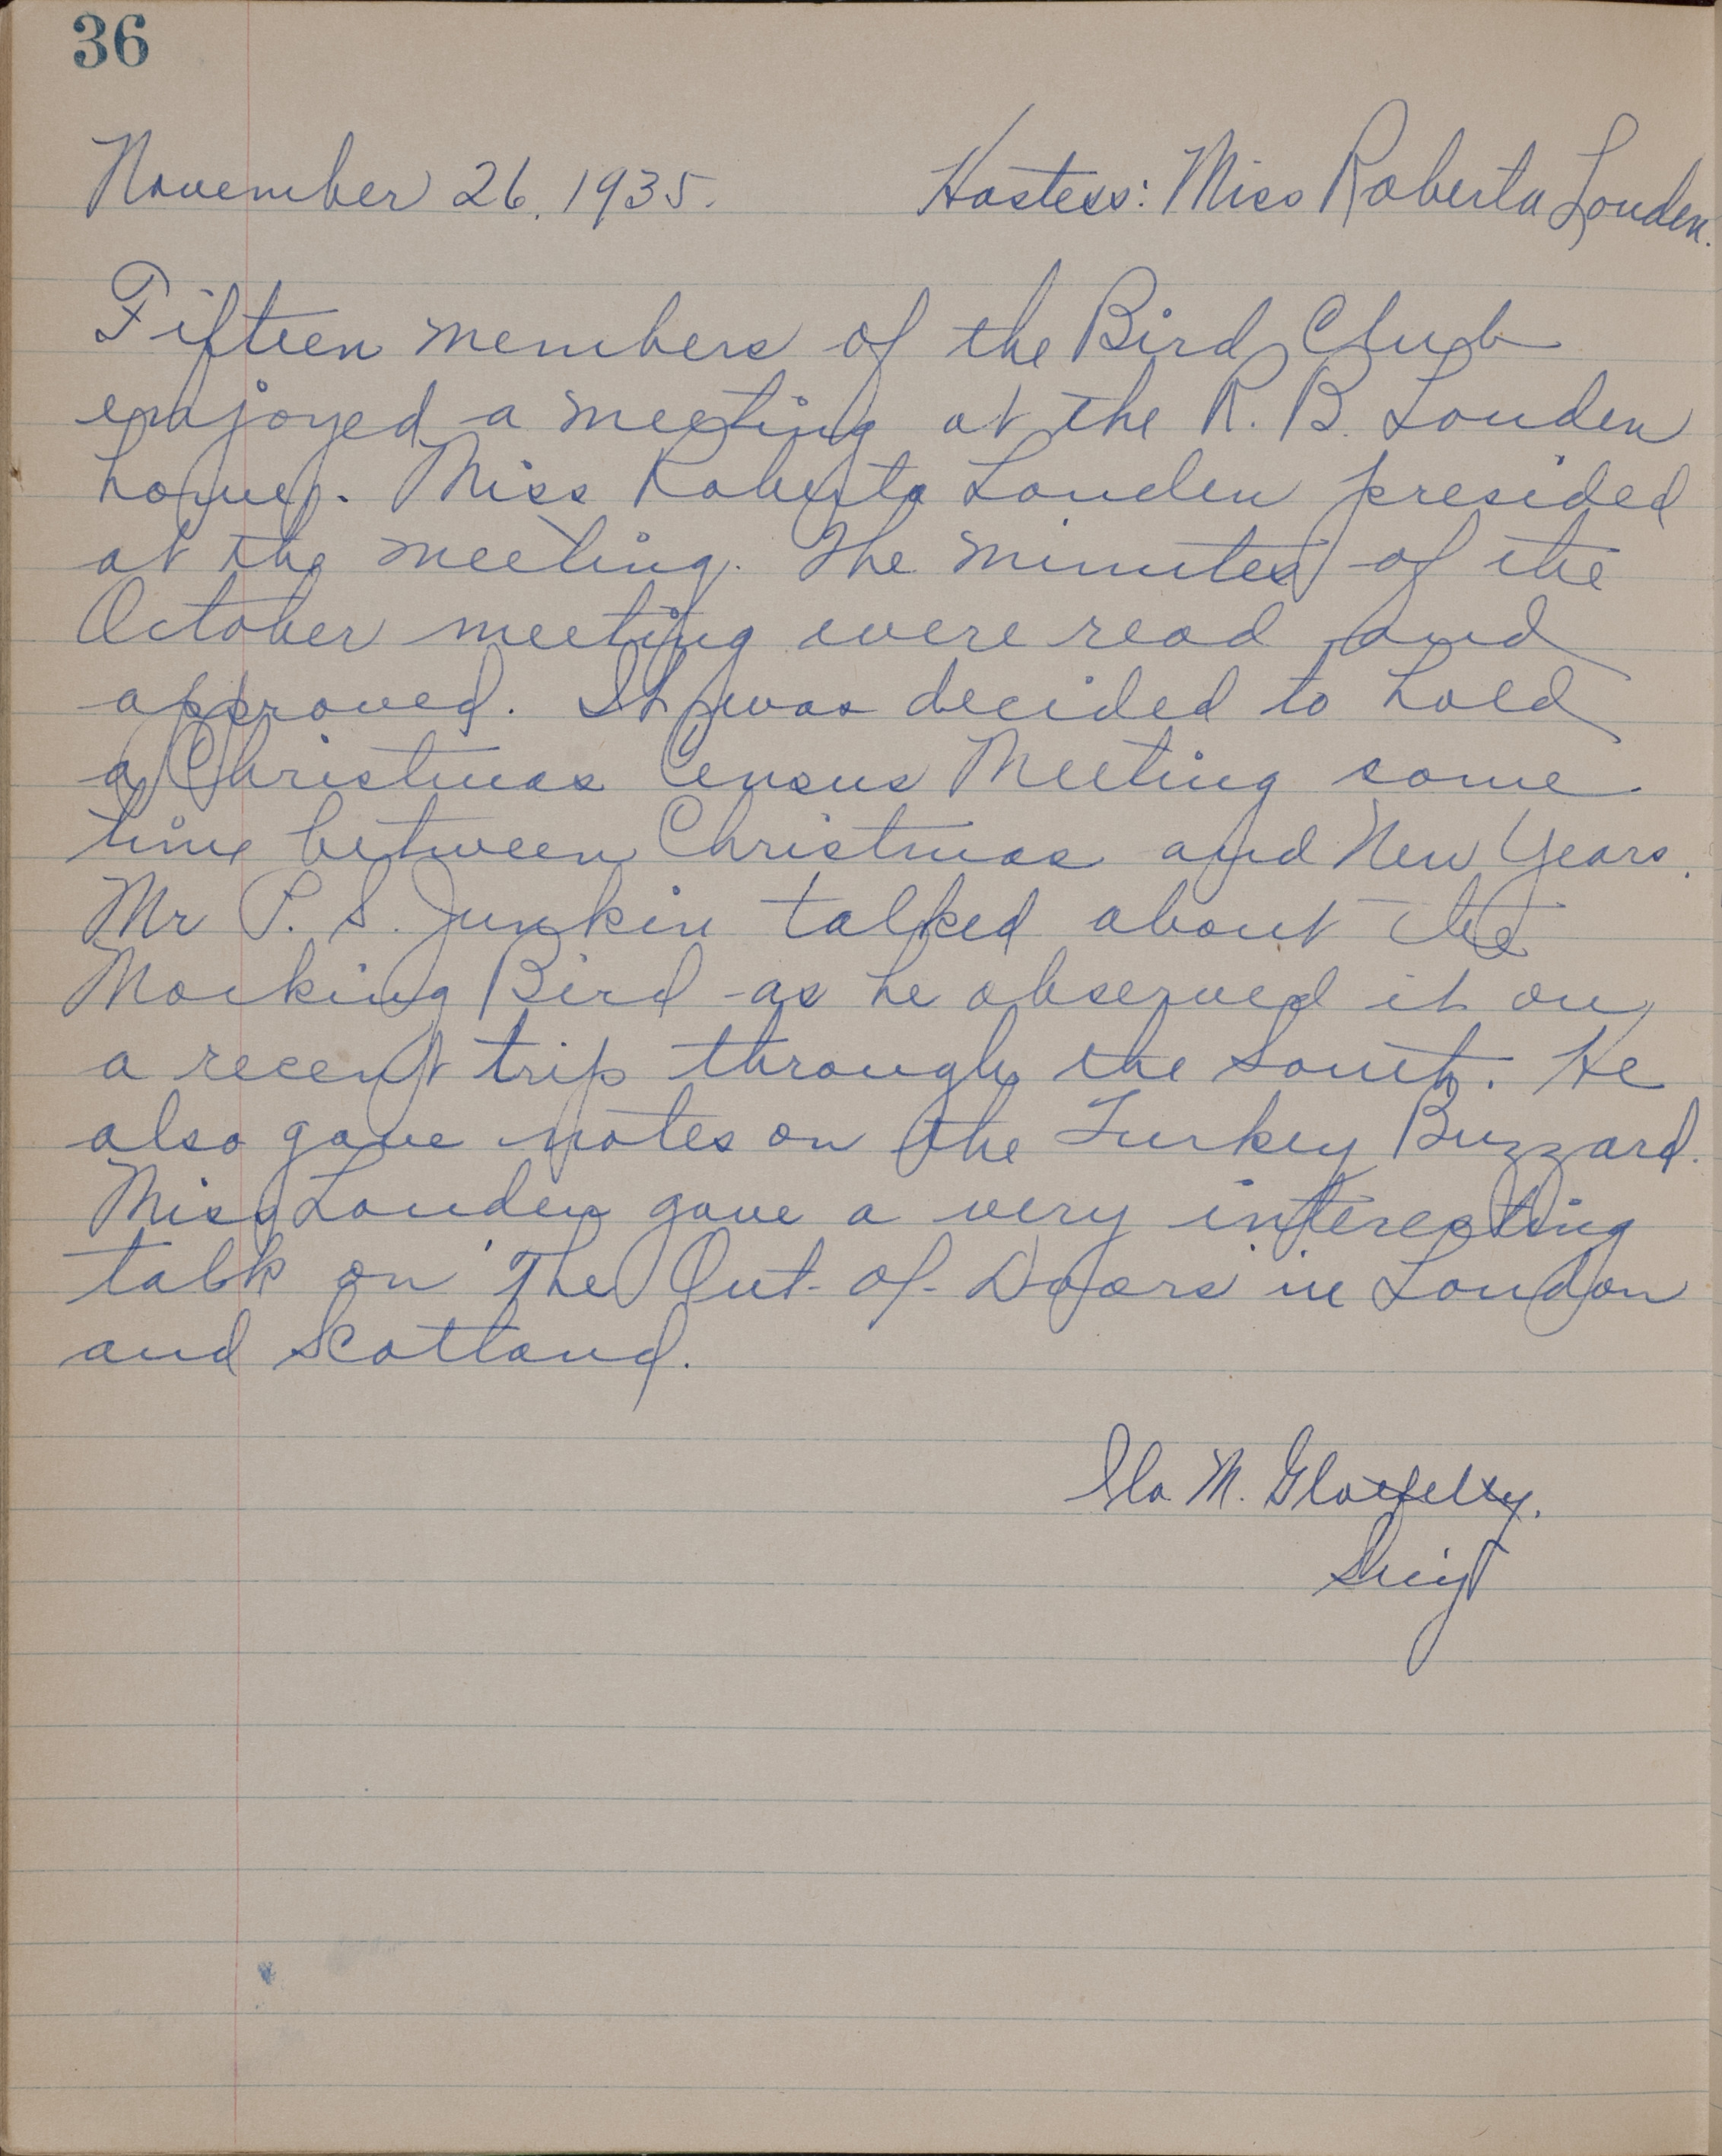 36
November 26, 1935. Hostess: Miss Roberta Louden.
Fifteen members of the Bird Club
enjoyed a meeting at the R. B. Louden
home. Miss Roberta Louden presided
at the meeting. The minutes of the
October meeting were read and
approved. It was decided to hold
a Christmas Census Meeting some
time between Christmas and New Years.
Mr P. S. Junkin talked about the
Mocking Bird as he observed it on
a recent trip through the South. He
also gave notes on the Turkey Buzzard.
Miss Louden gave a very interesting
talk on "The Out-of-Doors" in London
and Scotland.
Ila M. Glotfelty.